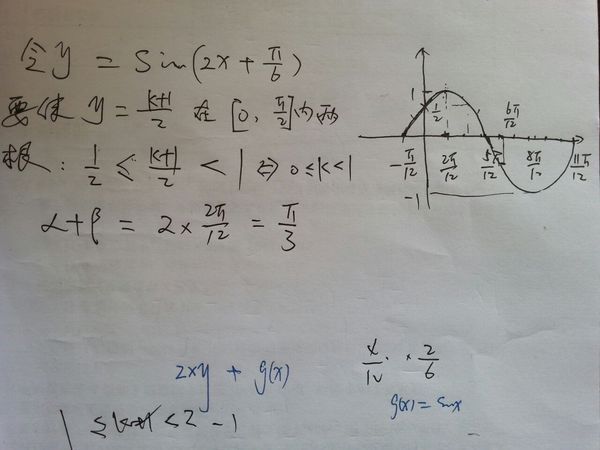 令y = Sin(2x + π/6)
要使 y = k+1/2 在 [0, π/2]内两
根: 1/2 ≤ k+1/2 < 1 ⇔ 0 ≤ k < 1
α+β = 2 × 2π/12 = π/3
1
1/2
6π/12
-π/12 2π/12 5π/12 8π/12 11π/12
-1
2xy + g(x)
× 2/6
g(x) = sinx
< 2 - 1